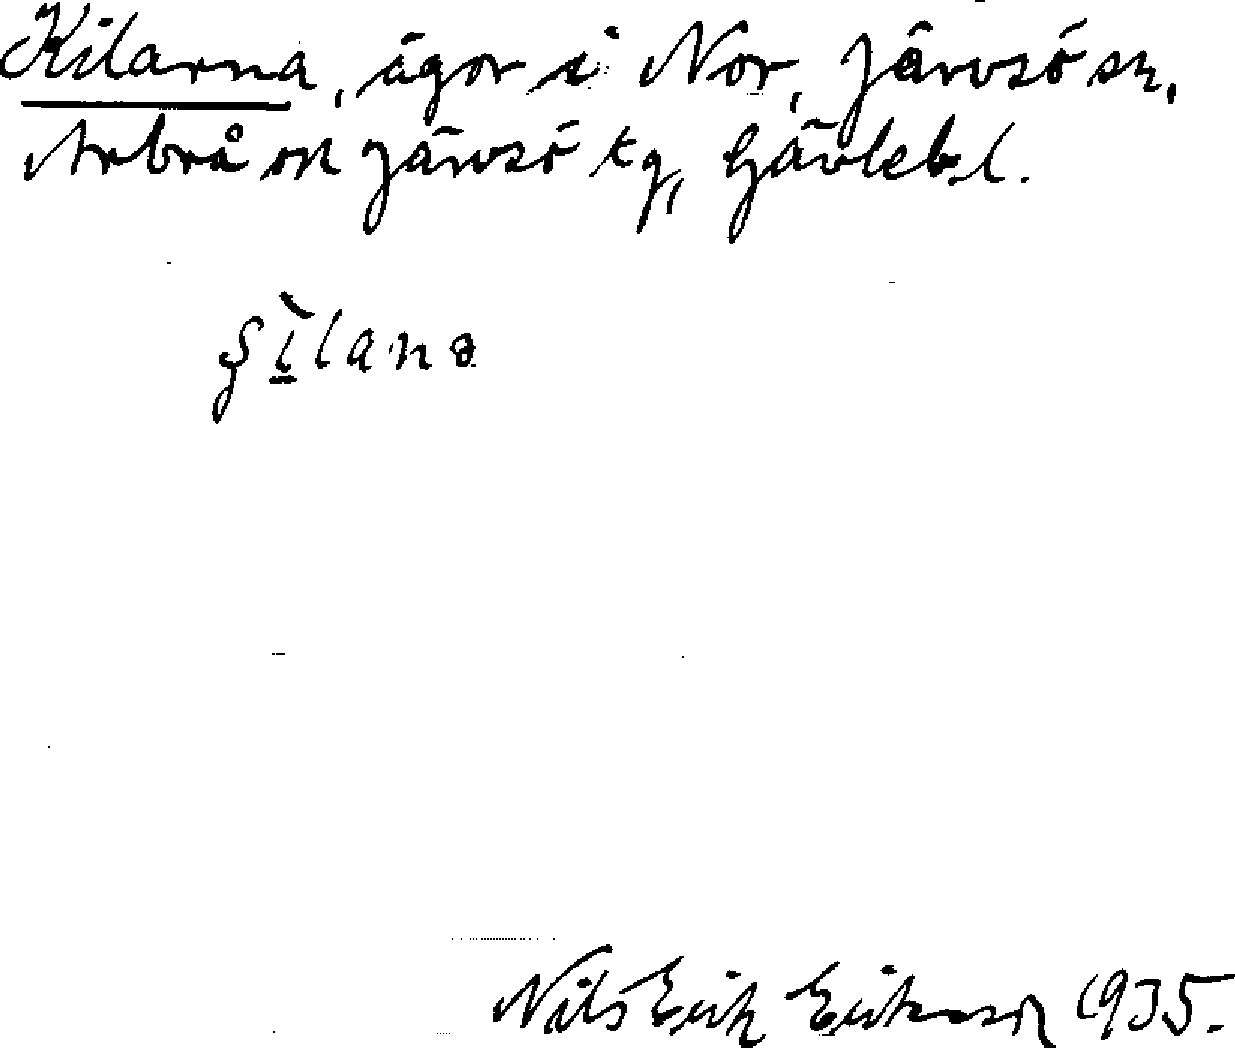 Kilarna, ägor i Nor, Järvsö sn,
Arbrå och Järvsö tg, Gävlebl.
Nils Erik Eriksson 1935.